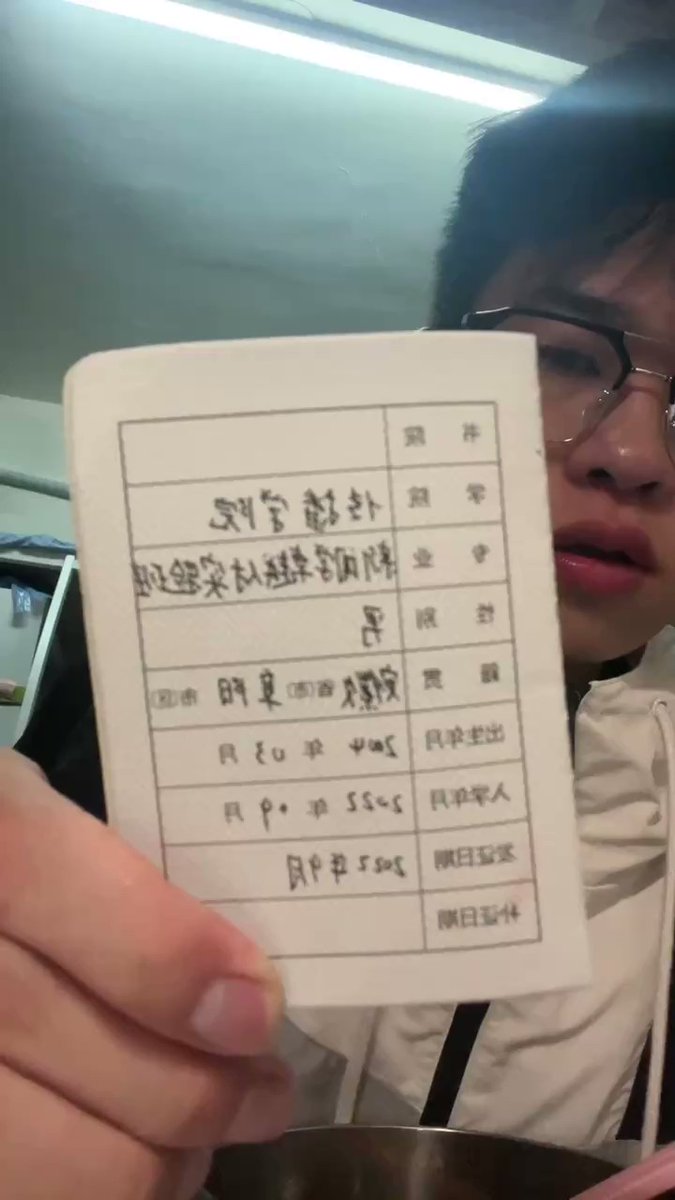 书 院
学 院 传播学院
专 业 新闻学卓越人才实验班
性 别 男
籍 贯 安徽省(市)阜阳市(区)
出生年月 2004 年 03 月
入学年月 2022 年 09 月
发证日期 2022年9月
补证日期